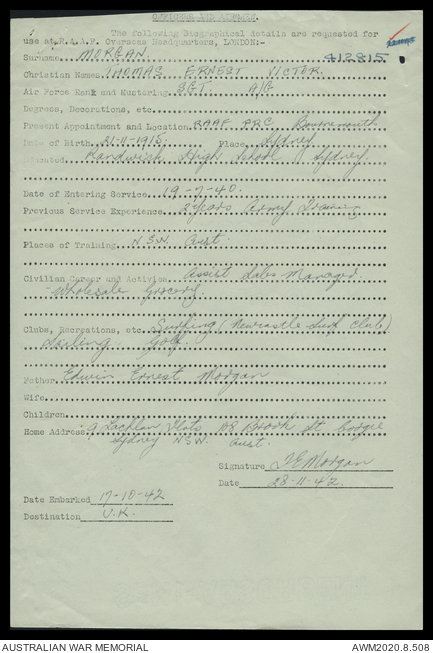 OFFICERS AND AIRMEN.
The following Biographical details are requested for
use at R.A.A.F. Overseas Headquarters, LONDON:-
412815.
Surname MORGAN.
Christian Names THOMAS ERNEST VICTOR.
Air Force Rank and Mustering SGT. A/G
Degrees, Decorations, etc.
Present Appointment and Location RAAF PRC Bournemouth
Date of Birth 21-11-1915 Place Sydney
Educated Randwick High School Sydney
Date of Entering Service 19-7-40.
Previous Service Experience 2 years Army Training
Places of Training N.S.W. Aust.
Civilian Career and Activies Assist Sales Manager.
- Wholesale Grocery.
Clubs, Recreations, etc. Surfing (Newcastle Surf Club)
Sailing Golf.
Father Edwin Ernest Morgan
Wife
Children
Home Address 9 Lachlan Flats Brook St Coogee
Sydney N.S.W. Aust.
Signature T E Morgan
Date 28-11-42.
Date Embarked 17-10-42
Destination U.K.
AUSTRALIAN WAR MEMORIAL AWM2020.8.508